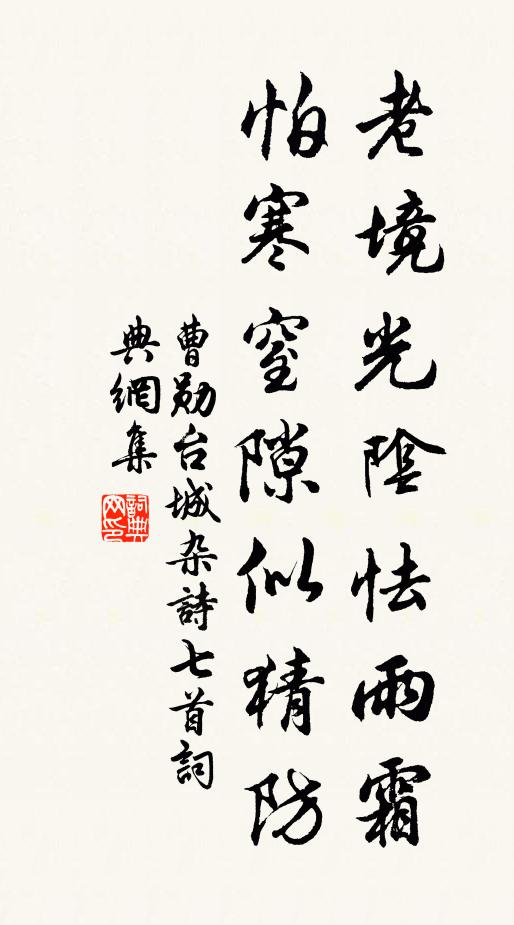 老境光陰怯雨霜
怕寒窒隙似猜防
曹勛台城杂詩七首詞
典網集
詞典
网印